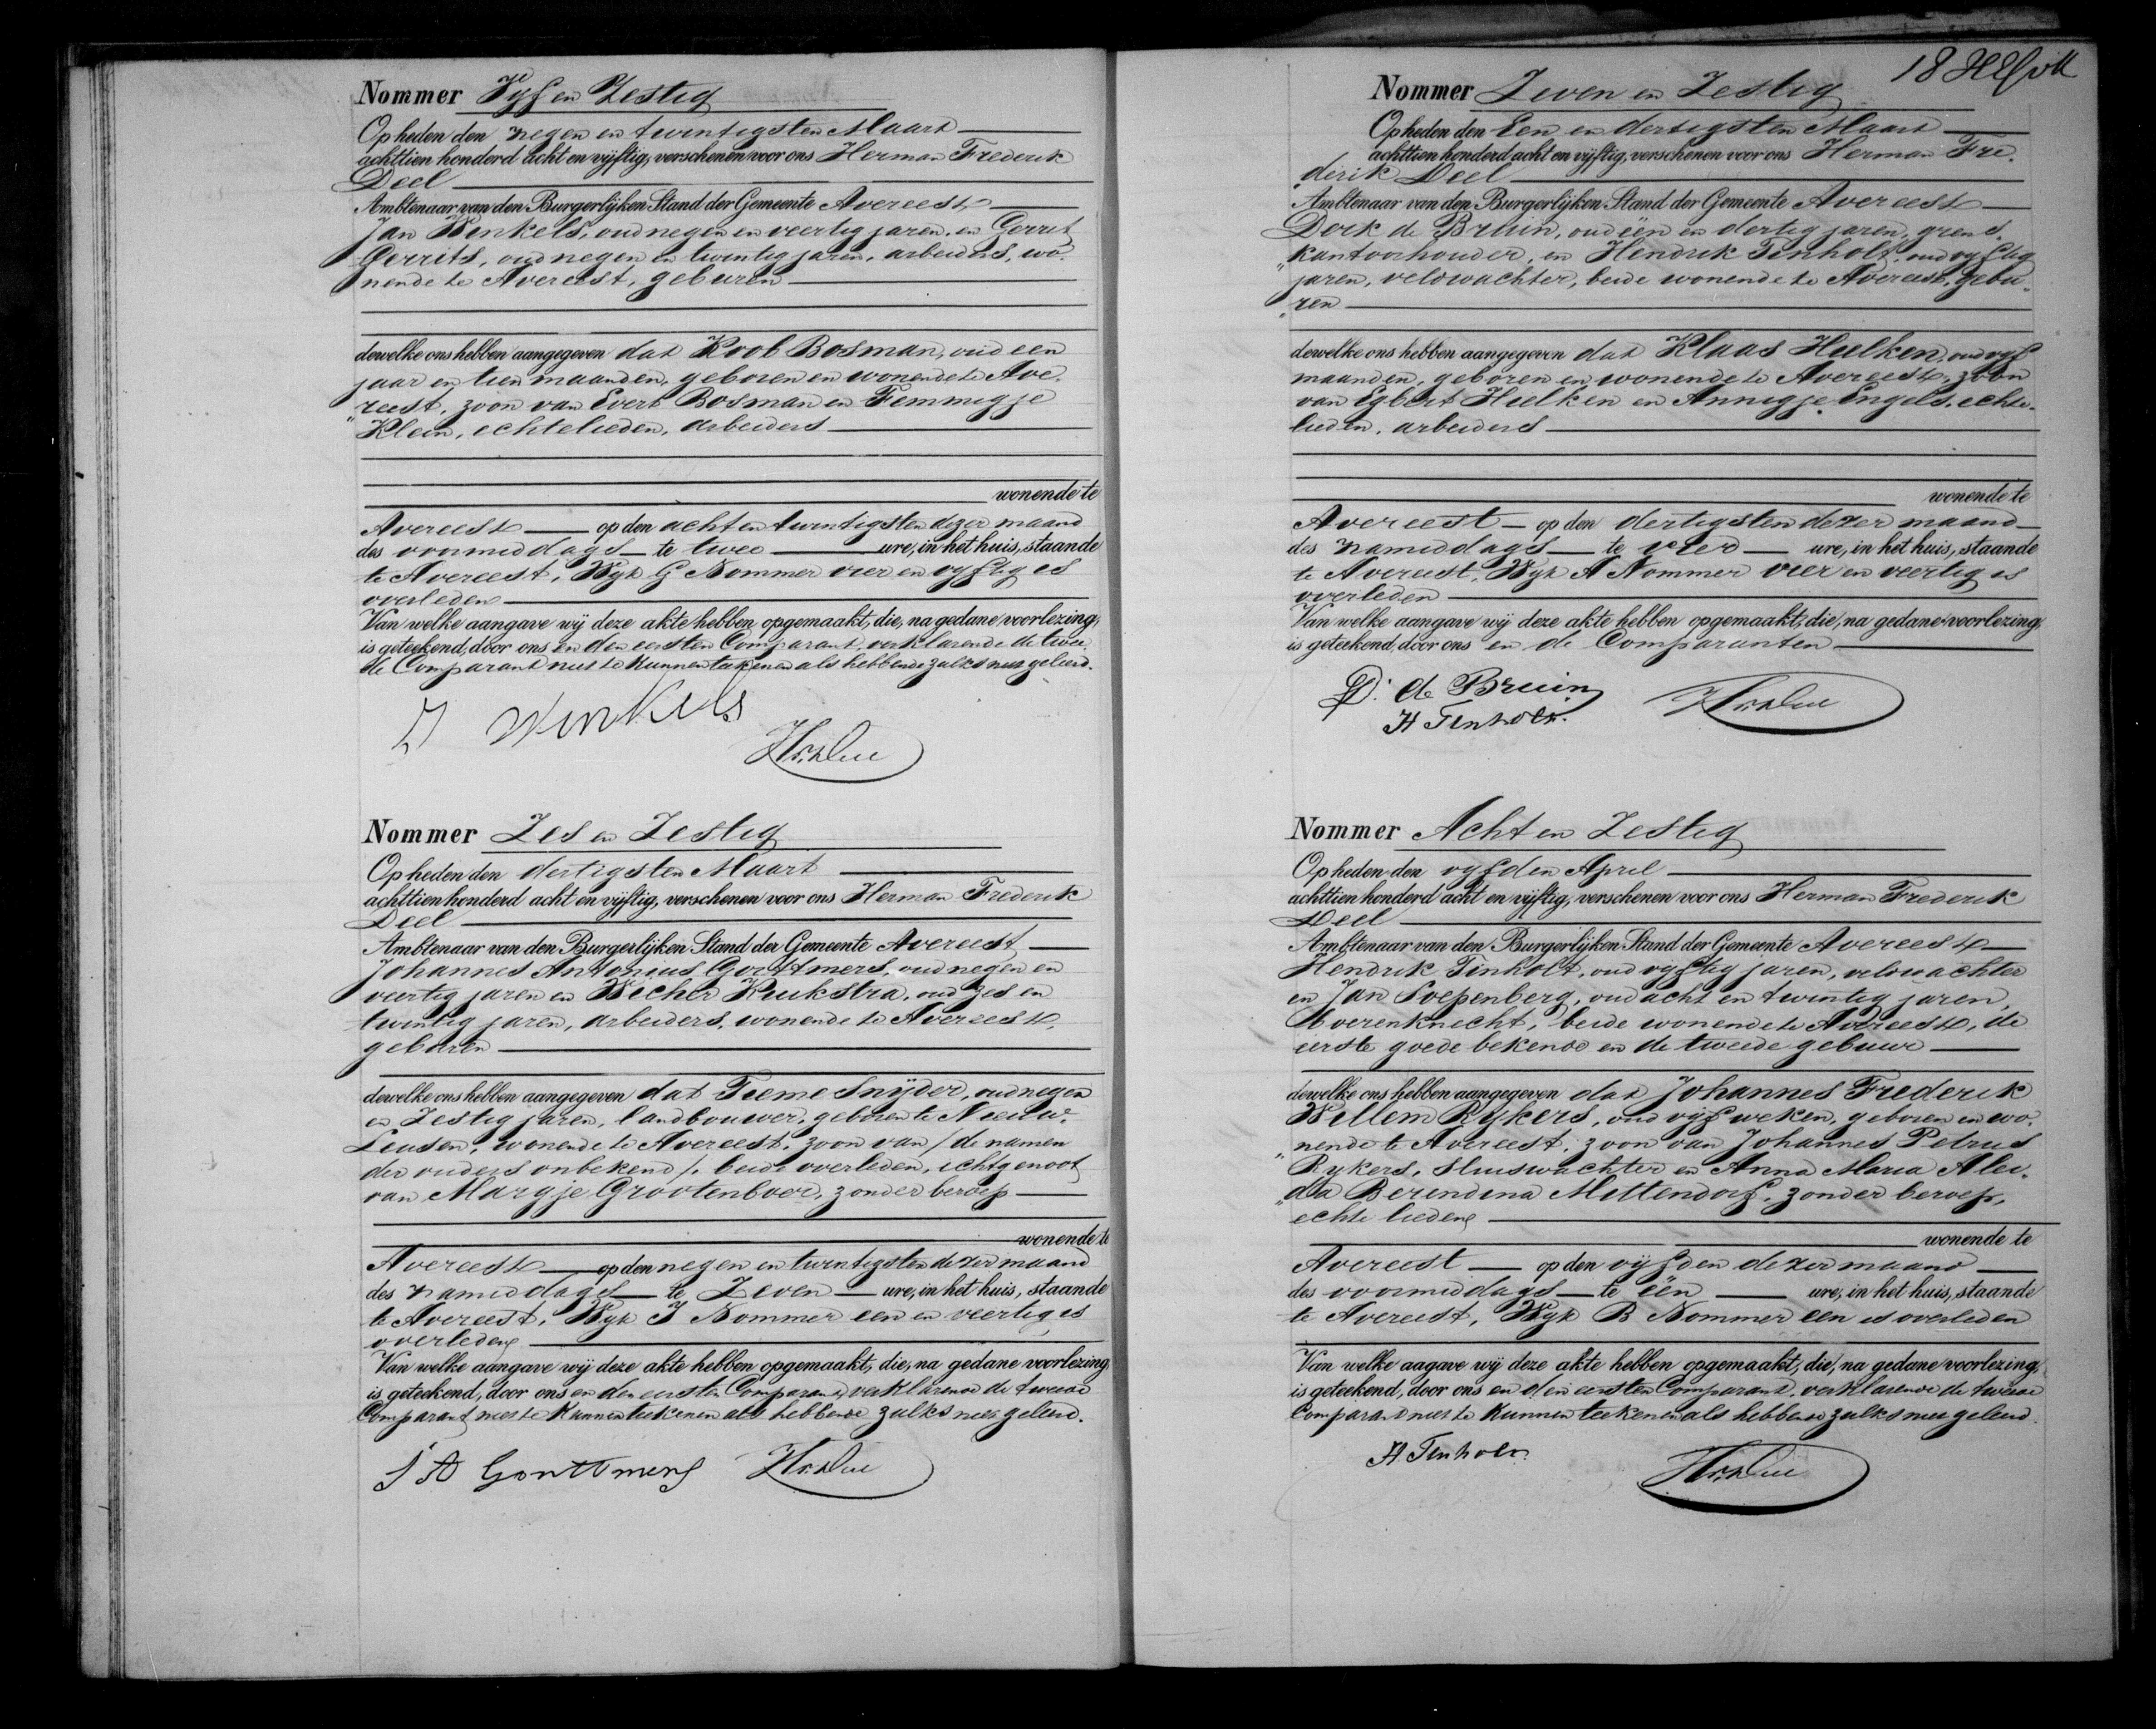 Nommer Vyf en Zestig
Op heden den negen en twintigsten Maart
achttien honderd acht en vijftig, verschenen voor ons Herman Frederik
Deel
Ambtenaar van den Burgerlijken Stand der Gemeente Avereest
Jan Winkels, oud negen en veertig jaren, en Gerrit
Gerrits, oud negen en twintig jaren, arbeiders, wo-
nende te Avereest, geburen
dewelke ons hebben aangegeven dat Roob Bosman, oud een
jaar en tien maanden, geboren en wonende te Ave-
reest, zoon van Evert Bosman en Femmigje
Klein, echtelieden, arbeiders
wonende te
Avereest op den acht en twintigsten dezer maand
des voormiddags te twee ure, in het huis, staande
te Avereest, Wyk G Nommer vier en vyftig is
overleden
Van welke aangave wij deze akte hebben opgemaakt, die, na gedane voorlezing,
is geteekend, door ons en den eersten Comparant, verklarende de twee-
de Comparant niet te kunnen teekenen als hebbende zulks niet geleerd.
J Winkels
Nommer Zes en Zestig
Op heden den dertigsten Maart
achttien honderd acht en vijftig, verschenen voor ons Herman Frederik
Deel
Ambtenaar van den Burgerlijken Stand der Gemeente Avereest
Johannes Antonius Gortmers, oud negen en
veertig jaren en Wicher Kuikstra, oud zes en
twintig jaren, arbeiders, wonende te Avereest,
geburen
dewelke ons hebben aangegeven dat Tieme Snyder, oud negen
en Zestig jaren, landbouwer, geboren te Nieuw-
Leusen, wonende te Avereest, zoon van /de namen
der ouders onbekend/, beide overleden, echtgenoot
van Margje Grootenboer, zonder beroep
wonende te
Avereest op den negen en twintigsten dezer maand
des namiddags te Zeven ure, in het huis, staande
te Avereest, Wyk I Nommer een en veertig is
overleden
Van welke aangave wij deze akte hebben opgemaakt, die, na gedane voorlezing,
is geteekend, door ons en den eersten Comparant, verklarende de tweede
Comparant niet te kunnen teekenen als hebbende zulks niet geleerd.
J A Gortmers
18
Nommer Zeven en Zestig
Op heden den Een en dertigsten Maart
achttien honderd acht en vijftig, verschenen voor ons Herman Fre-
derik Deel
Ambtenaar van den Burgerlijken Stand der Gemeente Avereest
Derk de Bruin, oud een en dertig jaren, grens-
kantonhouder, en Hendrik Tinholt, oud vyftig
jaren, veldwachter, beide wonende te Avereest, gebu-
ren
dewelke ons hebben aangegeven dat Klaas Hulken, oud vyf
maanden, geboren en wonende te Avereest, zoon
van Egbert Hulken en Annigje Engels, echte-
lieden, arbeiders
wonende te
Avereest op den dertigsten dezer maand
des namiddags te vier ure, in het huis, staande
te Avereest, Wyk A Nommer vier en veertig is
overleden
Van welke aangave wij deze akte hebben opgemaakt, die, na gedane voorlezing,
is geteekend, door ons en de Comparanten
D: de Bruin
H Tinholt.
Nommer Acht en Zestig
Op heden den vyfden April
achttien honderd acht en vijftig, verschenen voor ons Herman Frederik
Deel
Ambtenaar van den Burgerlijken Stand der Gemeente Avereest
Hendrik Tinholt, oud vyftig jaren, veldwachter
en Jan Soepenberg, oud acht en twintig jaren,
boerenknecht, beide wonende te Avereest, de
eerste goede bekende en de tweede gebuur
dewelke ons hebben aangegeven dat Johannes Frederik
Willem Rykers, oud vyf weken, geboren en wo-
nende te Avereest, zoon van Johannes Petrus
Rykers, sluiswachter en Anna Maria Alei-
da Berendina Mittendorf, zonder beroep,
echtelieden
wonende te
Avereest op den vijfden dezer maand
des voormiddags te een ure, in het huis, staande
te Avereest, Wyk B Nommer een is overleden
Van welke aagave wij deze akte hebben opgemaakt, die, na gedane voorlezing,
is geteekend, door ons en den eersten Comparant, verklarende de tweede
Comparant niet te kunnen teekenen als hebbende zulks niet geleerd.
H Tinholt